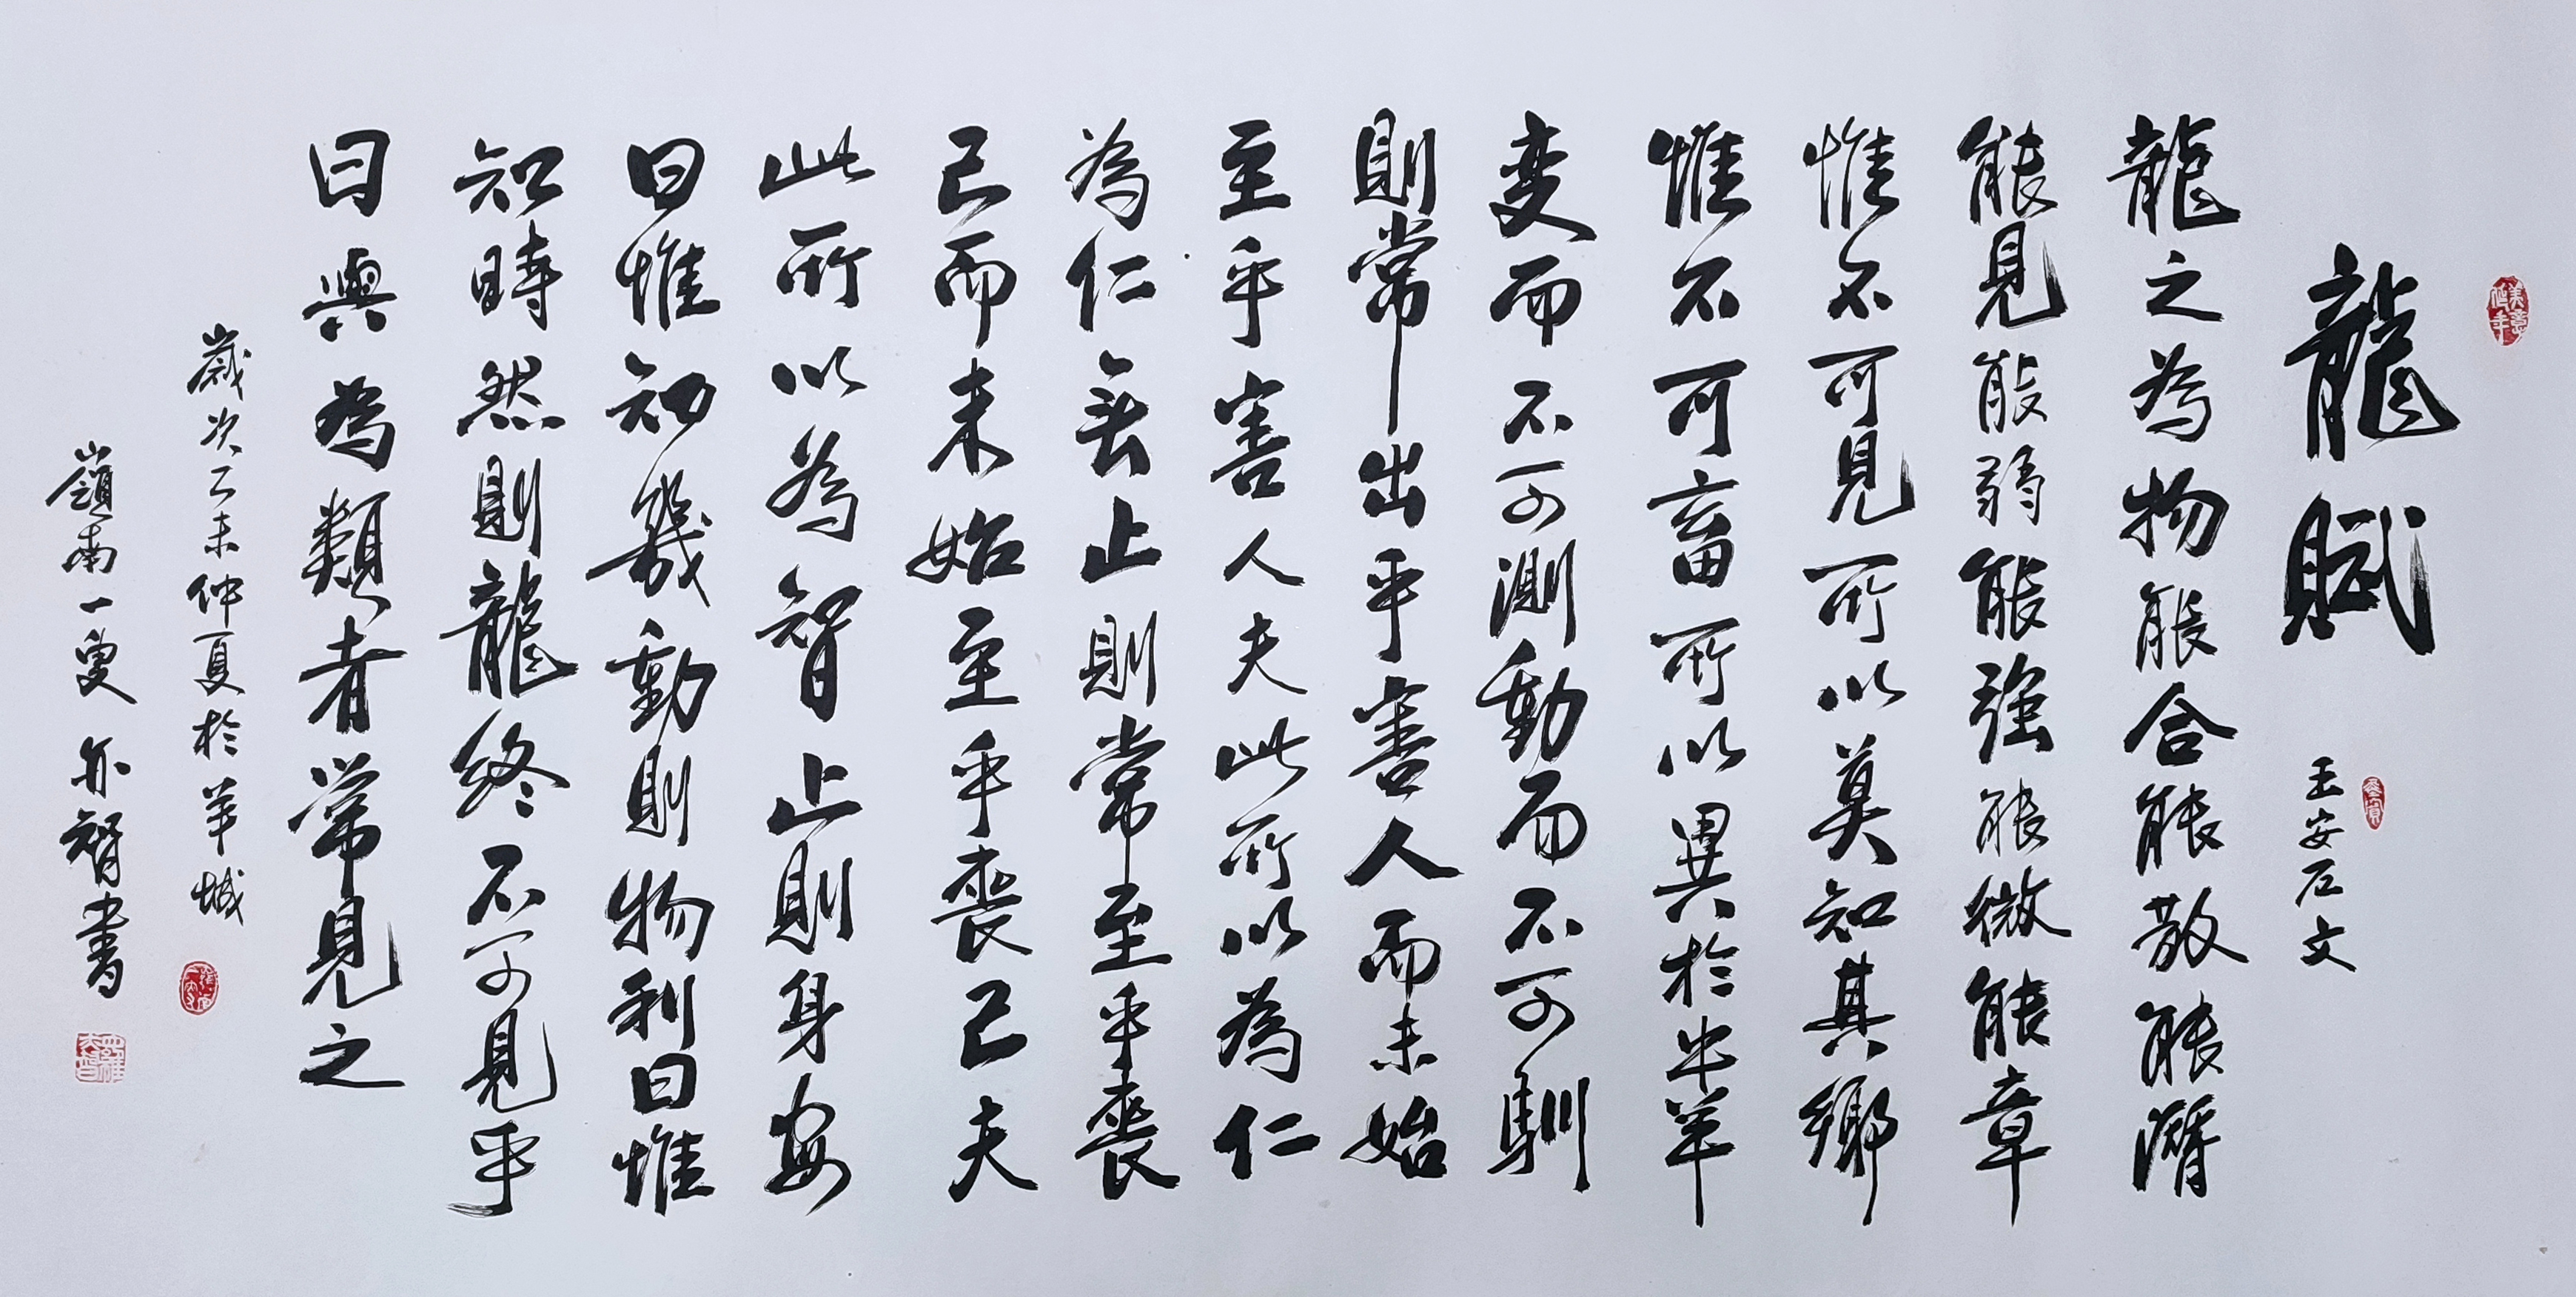 美意延年
龍賦
王安石文
龍之為物能合能散能潛
能見能弱能强能微能章
惟不可見所以莫知其鄉
惟不可畜所以異於牛羊
变而不可測動而不可馴
則常出乎害人而未始
至乎害人夫此所以為仁
為仁無止則常至乎喪
己而未始至乎喪己夫
此所以為智止則身安
曰惟知幾動則物利曰惟
知時然則龍終不可見乎
曰與為類者常見之
歲次乙未仲夏於羊城
嶺南一叟亦智書